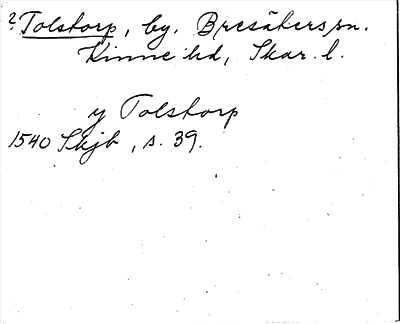 ? Tolstorp, by. Bresäkers sn.
Kinne hd, Skar. l.
y Tolstorp
1540 Skjb, s. 39.